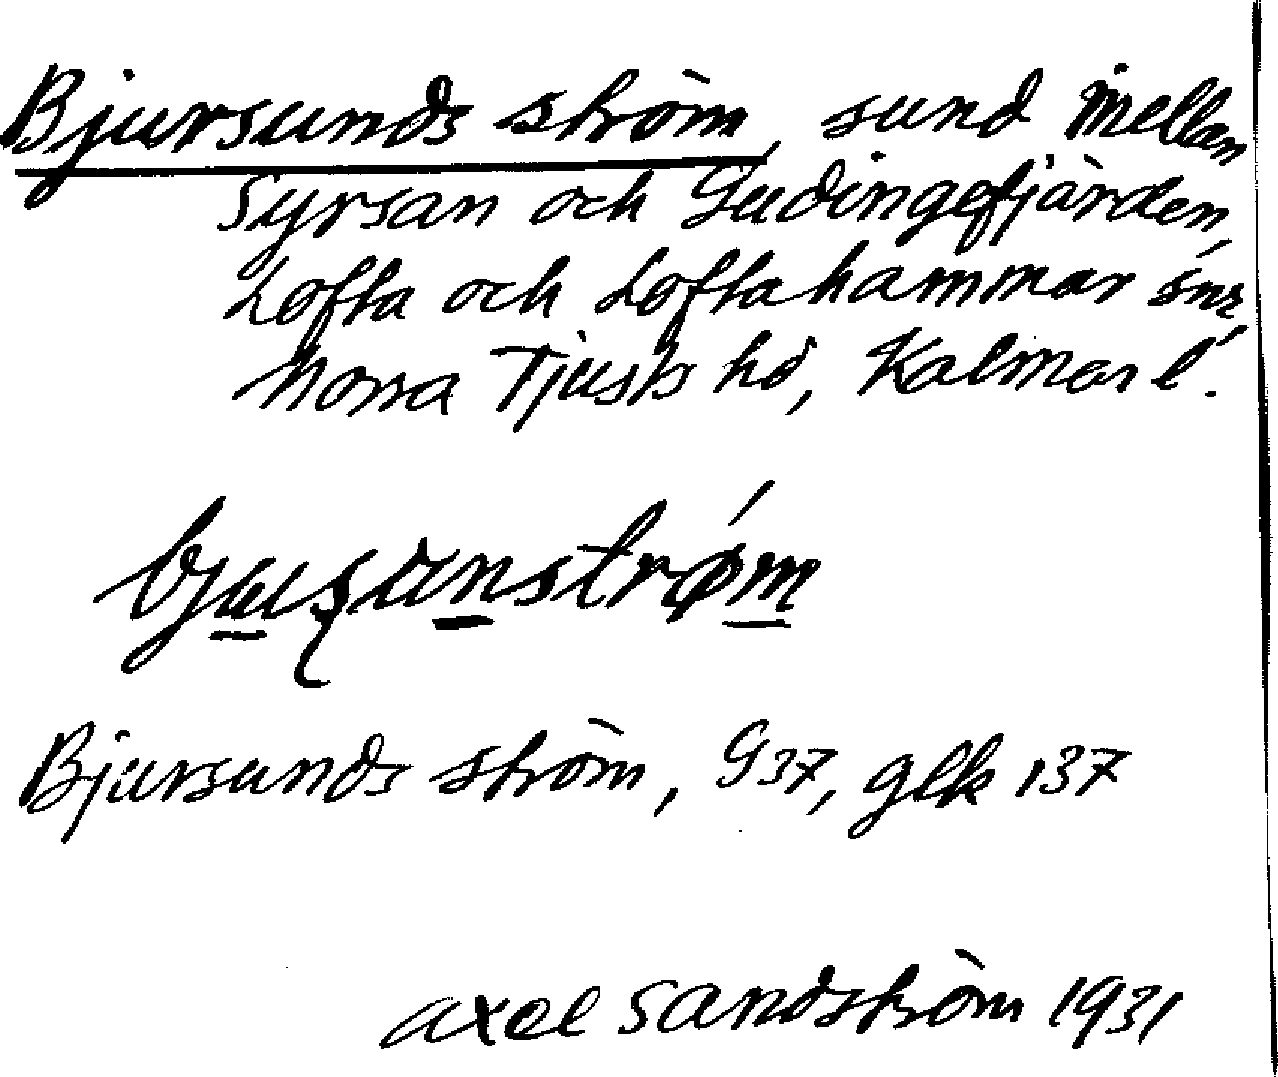 Bjursunds ström, sund mellan
Syrsan och Gudingefjärden,
Lofta och Loftahammar snr,
Norra Tjusts hd, Kalmar l.
Bjursunds ström, G37, glk 137
Axel Sandström 1931